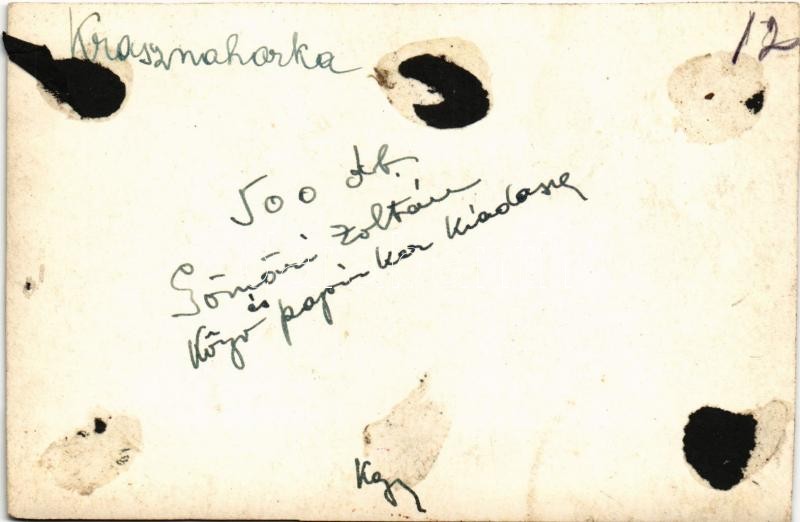 Krasznahorka
12
500 db.
Gömöri Zoltán
és
Könyv papír ker kiadása